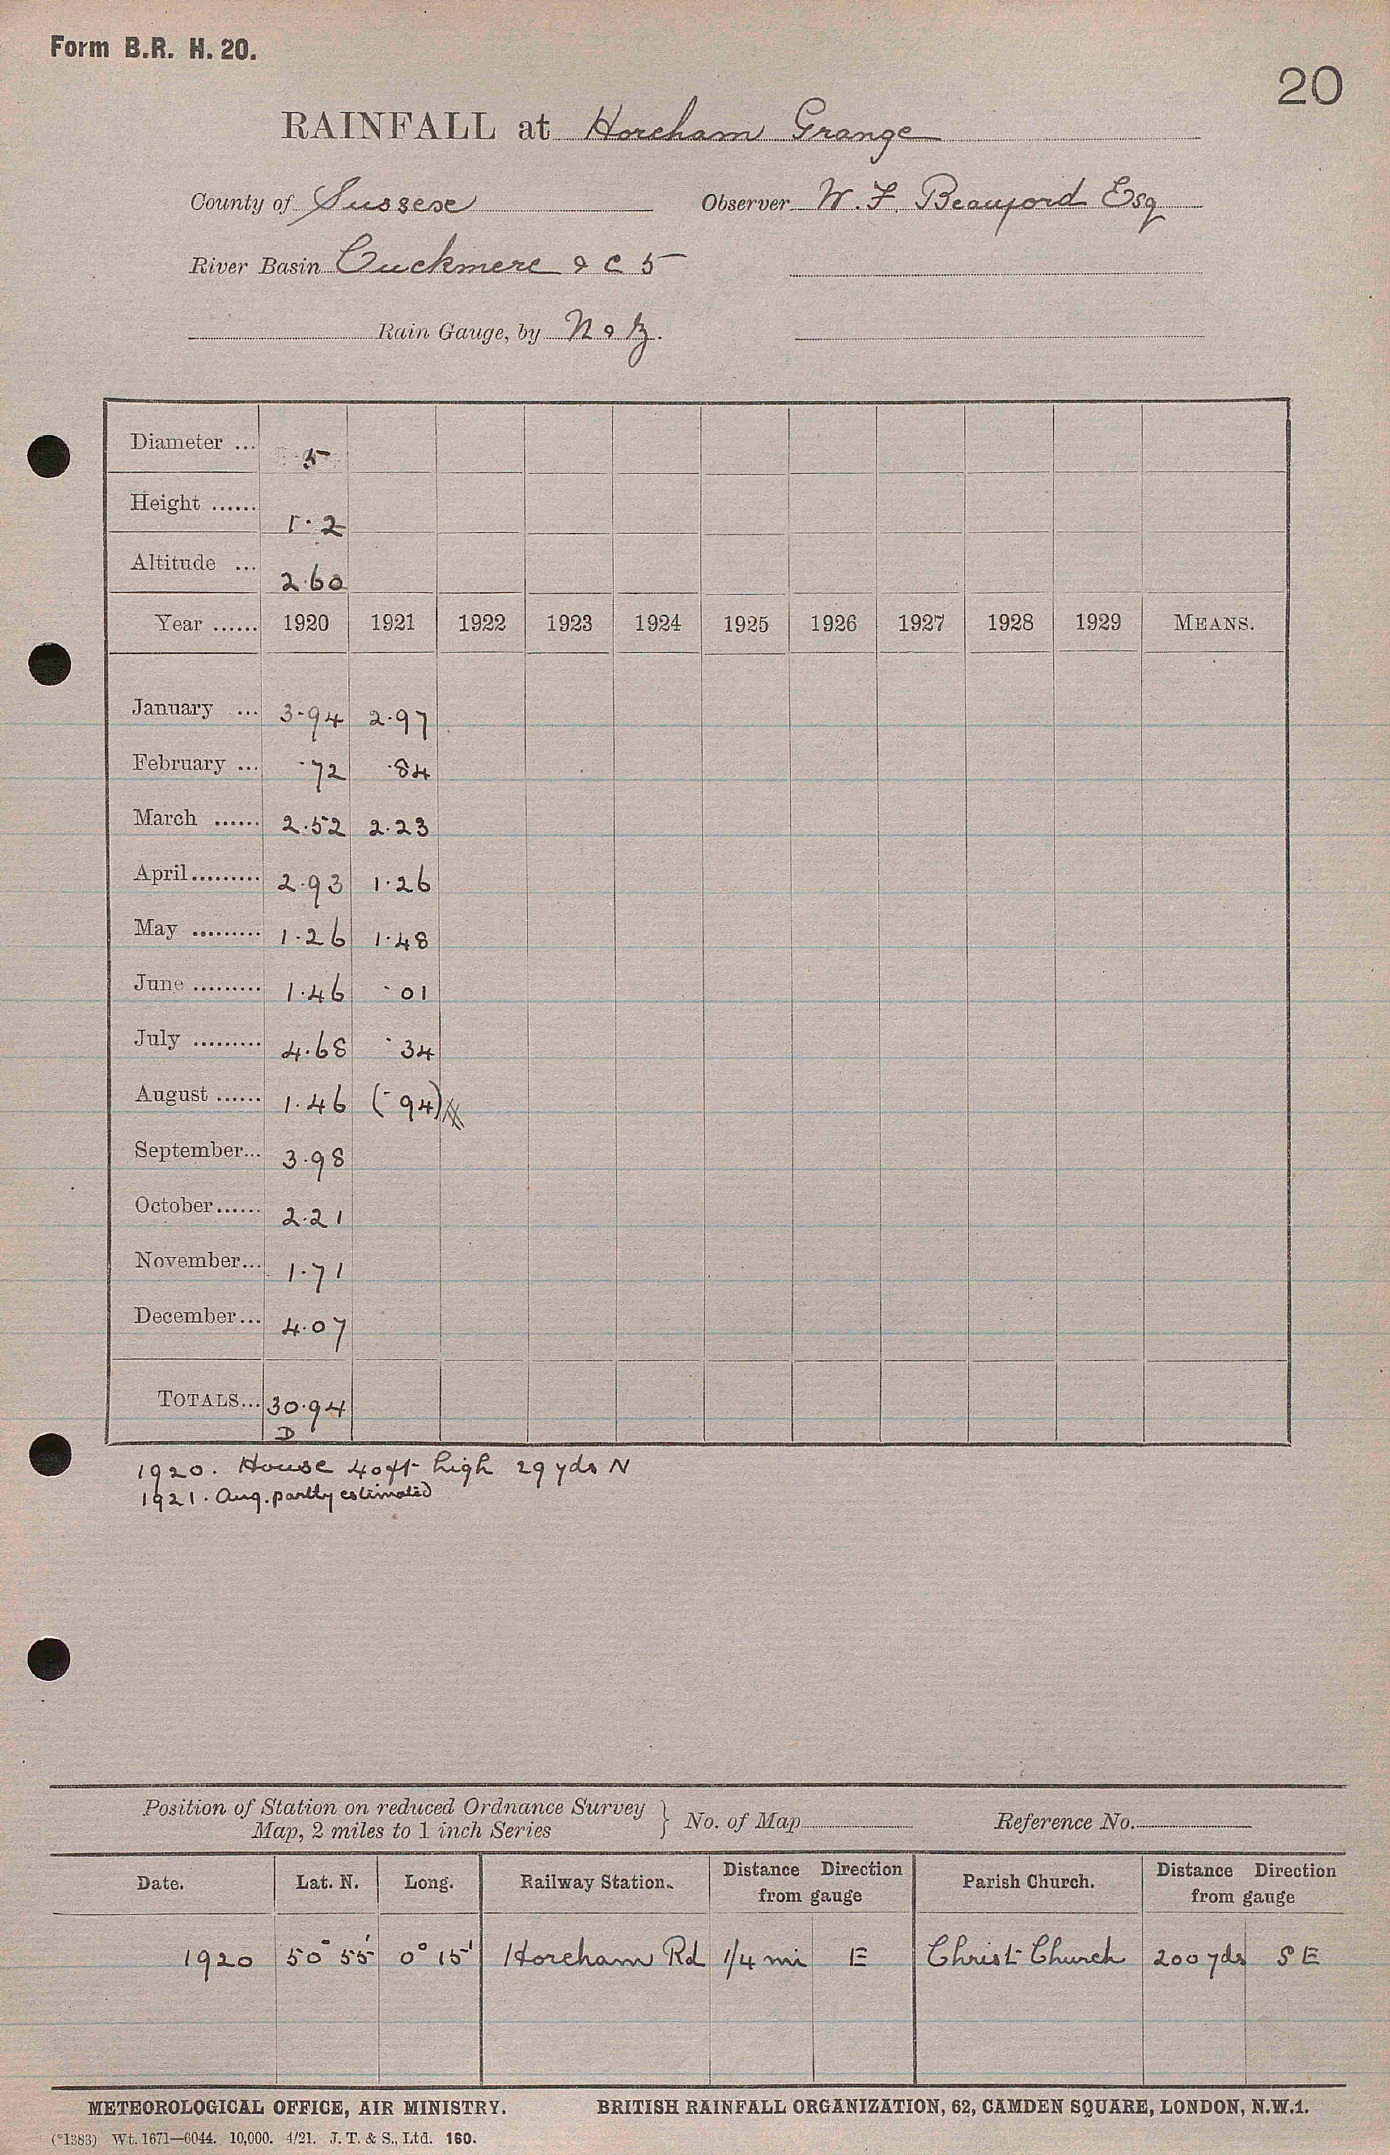 Form B.R. H. 20.
20
RAINFALL at Horeham Grange
County of Sussex Observer W. F. Beauford Esq
River Basin Cuckmere & C 5
Rain Gauge, by N & Z.
Diameter ... 5
Height ...... 1.2
Altitude ... 260
Year ...... 1920 1921 1922 1923 1924 1925 1926 1927 1928 1929 MEANS.
January ... 3.94 2.97
February ... .72 .84
March ...... 2.52 2.23
April ......... 2.93 1.26
May ......... 1.26 1.48
June ......... 1.46 .01
July ......... 4.68 .34
August ...... 1.46 (.94)
September... 3.98
October...... 2.21
November... 1.71
December... 4.07
TOTALS... 30.94
D
1920. House 40ft high 29 yds N
1921. Aug. partly estimated
Position of Station on reduced Ordnance Survey
Map, 2 miles to 1 inch Series } No. of Map Reference No.
Date. Lat. N. Long. Railway Station. Distance Direction from gauge Parish Church. Distance Direction from gauge
1920 50° 55' 0° 15' Horeham Rd 1/4 mi E Christ Church 200 yds S E
METEOROLOGICAL OFFICE, AIR MINISTRY. BRITISH RAINFALL ORGANIZATION, 62, CAMDEN SQUARE, LONDON, N.W.1.
(*1383) Wt. 1671—6044. 10,000. 4/21. J. T. & S., Ltd. 160.